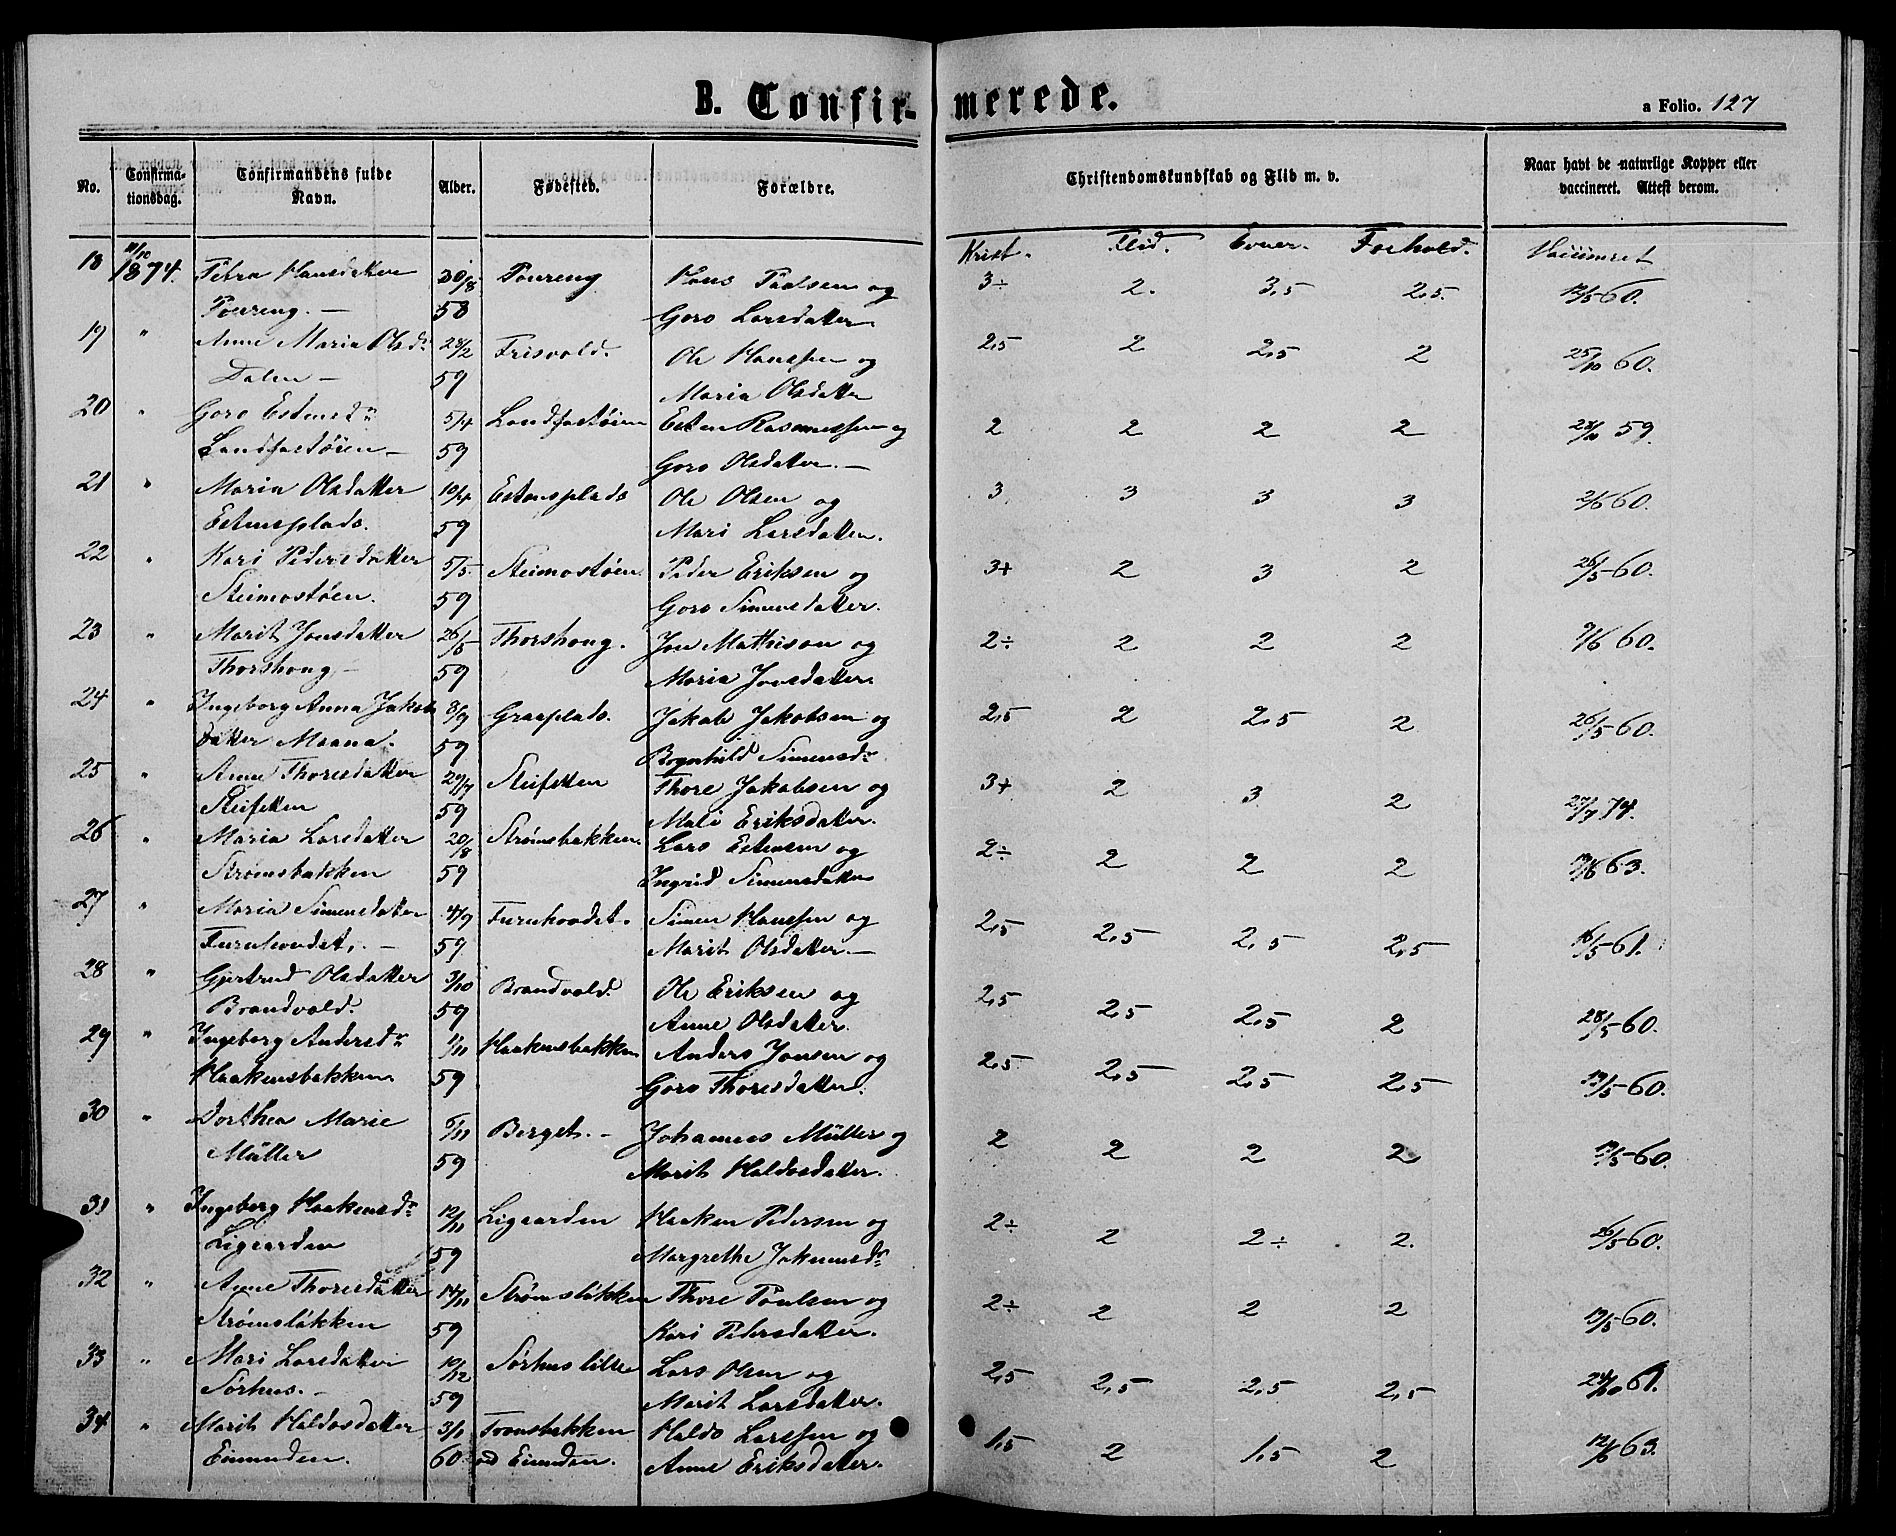 B. Confir- merede.
a Folio. 127
No. Confirma-tionsdag. Confirmandens fulde Navn. Alder. Fødested. Forældre. Christendomskundskab og Flid m. v. Naar havt de naturlige Kopper eller vaccineret. Attest derom.
Krist. Flid. Evner. Forhold. Vaccineret
18 11/10 1874. Petra Hansdatter 30/8 Poureng Hans Paulsen og 3÷ 2. 3,5 2,5. 12/5 60.
Poureng. — 58 Goro Larsdatter
19 " Anne Maria Olsdr 28/2 Frisvold. Ole Hanssen og 2,5 2 2,5 2 25/10 60.
Dalen — 59 Maria Olsdatter
20 " Goro Estensdr 5/4 Landfastøien Esten Rasmussen og 2 2 2 2 28/10 59.
Landfastøien — 59 Goro Olsdatter. —
21 " Maria Olsdatter 10/4 Estensplads Ole Olsen og 3 3 3 3 2/6 60.
Estensplads. 59 Mari Larsdatter.
22 " Kari Pedersdatter 5/5 Steimostøen Peder Eriksen og 3+ 2 3 2 26/5 60.
Steimostøen. 59 Goro Simensdatter.
23 " Marit Jonsdatter 26/5 Thorshoug. Jon Mathison og 2÷ 2 2 2 9/6 60.
Thorshoug — 59 Maria Jonsdatter
24 " Ingeborg Anna Jakobs 8/9 Graaplads. Jakob Jakobsen og 2,5 2 2,5 2 26/5 60.
datter Moana. 59 Bognhild Simensdr
25 " Anne Thoresdatter 29/7 Steifetten Thore Jakobsen og 3+ 2 3 2 27/7 74.
Steifetten 59 Mali Eriksdatter.
26 " Maria Larsdatter 20/8 Strømsbakken. Lars Estensen og 2÷ 2 2 2 19/6 63.
Strømsbakken 59 Ingrid Simensdatter
27 " Maria Simensdatter 4/9 Furuhovdet. Simen Hanssen og 2,5 2,5 2,5 2,5 16/5 61.
Furuhovdet. — 59. Marit Olsdatter —
28 " Gjertrud Olsdatter 3/10 Brandvold. Ole Eriksen og 2,5 2,5 2,5 2 28/5 60.
Brandvold. 59 Anne Olsdatter.
29 " Ingeborg Andersdr 1/11 Haakensbakken Anders Jonsen og 2,5 2,5 2,5 2,5 19/5 60.
Haakensbakken 59 Goro Thoresdatter.
30 " Dorthea Marie 6/11 Berget. — Johannes Müller og 2 2 2 2 19/5 60.
Müller 59 Marit Haldosdatter.
31 " Ingeborg Haakensdr 12/11 Ligaarden Haaken Pedersen og 2÷ 2 2÷ 2. 26/5 60.
Ligaarden 59 Margrethe Johannesdr
32 " Anne Thoresdatter 14/11 Strømsløkken Thore Poulsen og 2÷ 2 2 2 19/5 60.
Strømsløkken 59 Kari Pedersdatter.
33 " Mari Larsdatter 10/12 Sørhus lille Lars Olsen og 2,5 2,5 2,5 2,5 24/10 61.
Sørhus. — 59 Marit Larsdatter.
34 " Marit Haldosdatter 3/1 Tronsbakken Haldo Larssen og 1,5 2 1,5 2 12/6 63.
Einunden. 60 ved Einunden. Anne Eriksdatter.